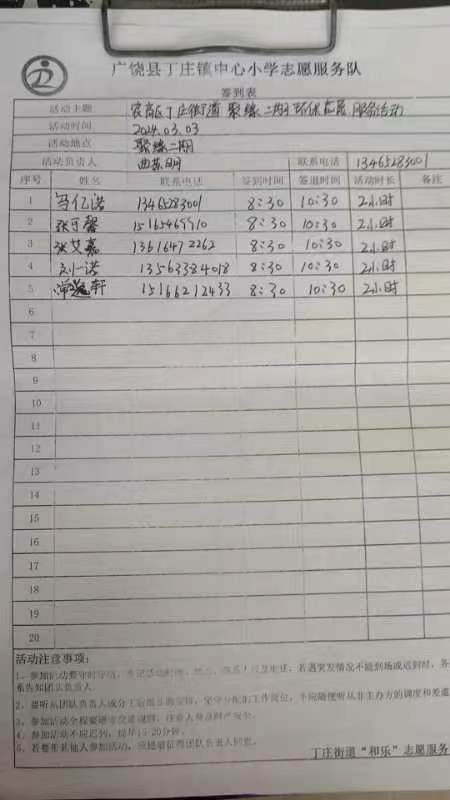 广饶县丁庄镇中心小学志愿服务队
签到表
活动主题 农高区丁庄街道 聚缘二期 环保志愿服务活动
活动时间 2024.03.03
活动地点 聚缘二期
活动负责人 联系电话 13465283001
序号 姓名 联系电话 签到时间 签退时间 活动时长 备注
1 马亿诺 13465283001 8:30 10:30 2小时
2 张可馨 15165469910 8:30 10:30 2小时
3 张艾嘉 13616472262 8:30 10:30 2小时
4 刘一诺 13563384018 8:30 10:30 2小时
5 轩 15166212433 8:30 10:30 2小时
6
7
8
9
10
11
12
13
14
15
16
17
18
19
20
活动注意事项:
1、参加活动要守时守信,若遇突发情况不能到场或迟到时,务
系告知团队负责人
2、要听从团队负责人或分工,坚守分配的工作岗位,不应随便听从非主办方的调度和差遣
3、参加活动全程要遵守交通规则,注意人身及财产安全。
4、参加活动不应迟到,提早15-20分钟。
5、若要带其他人参加活动,应提前征得团队负责人同意。
丁庄街道“和乐”志愿服务